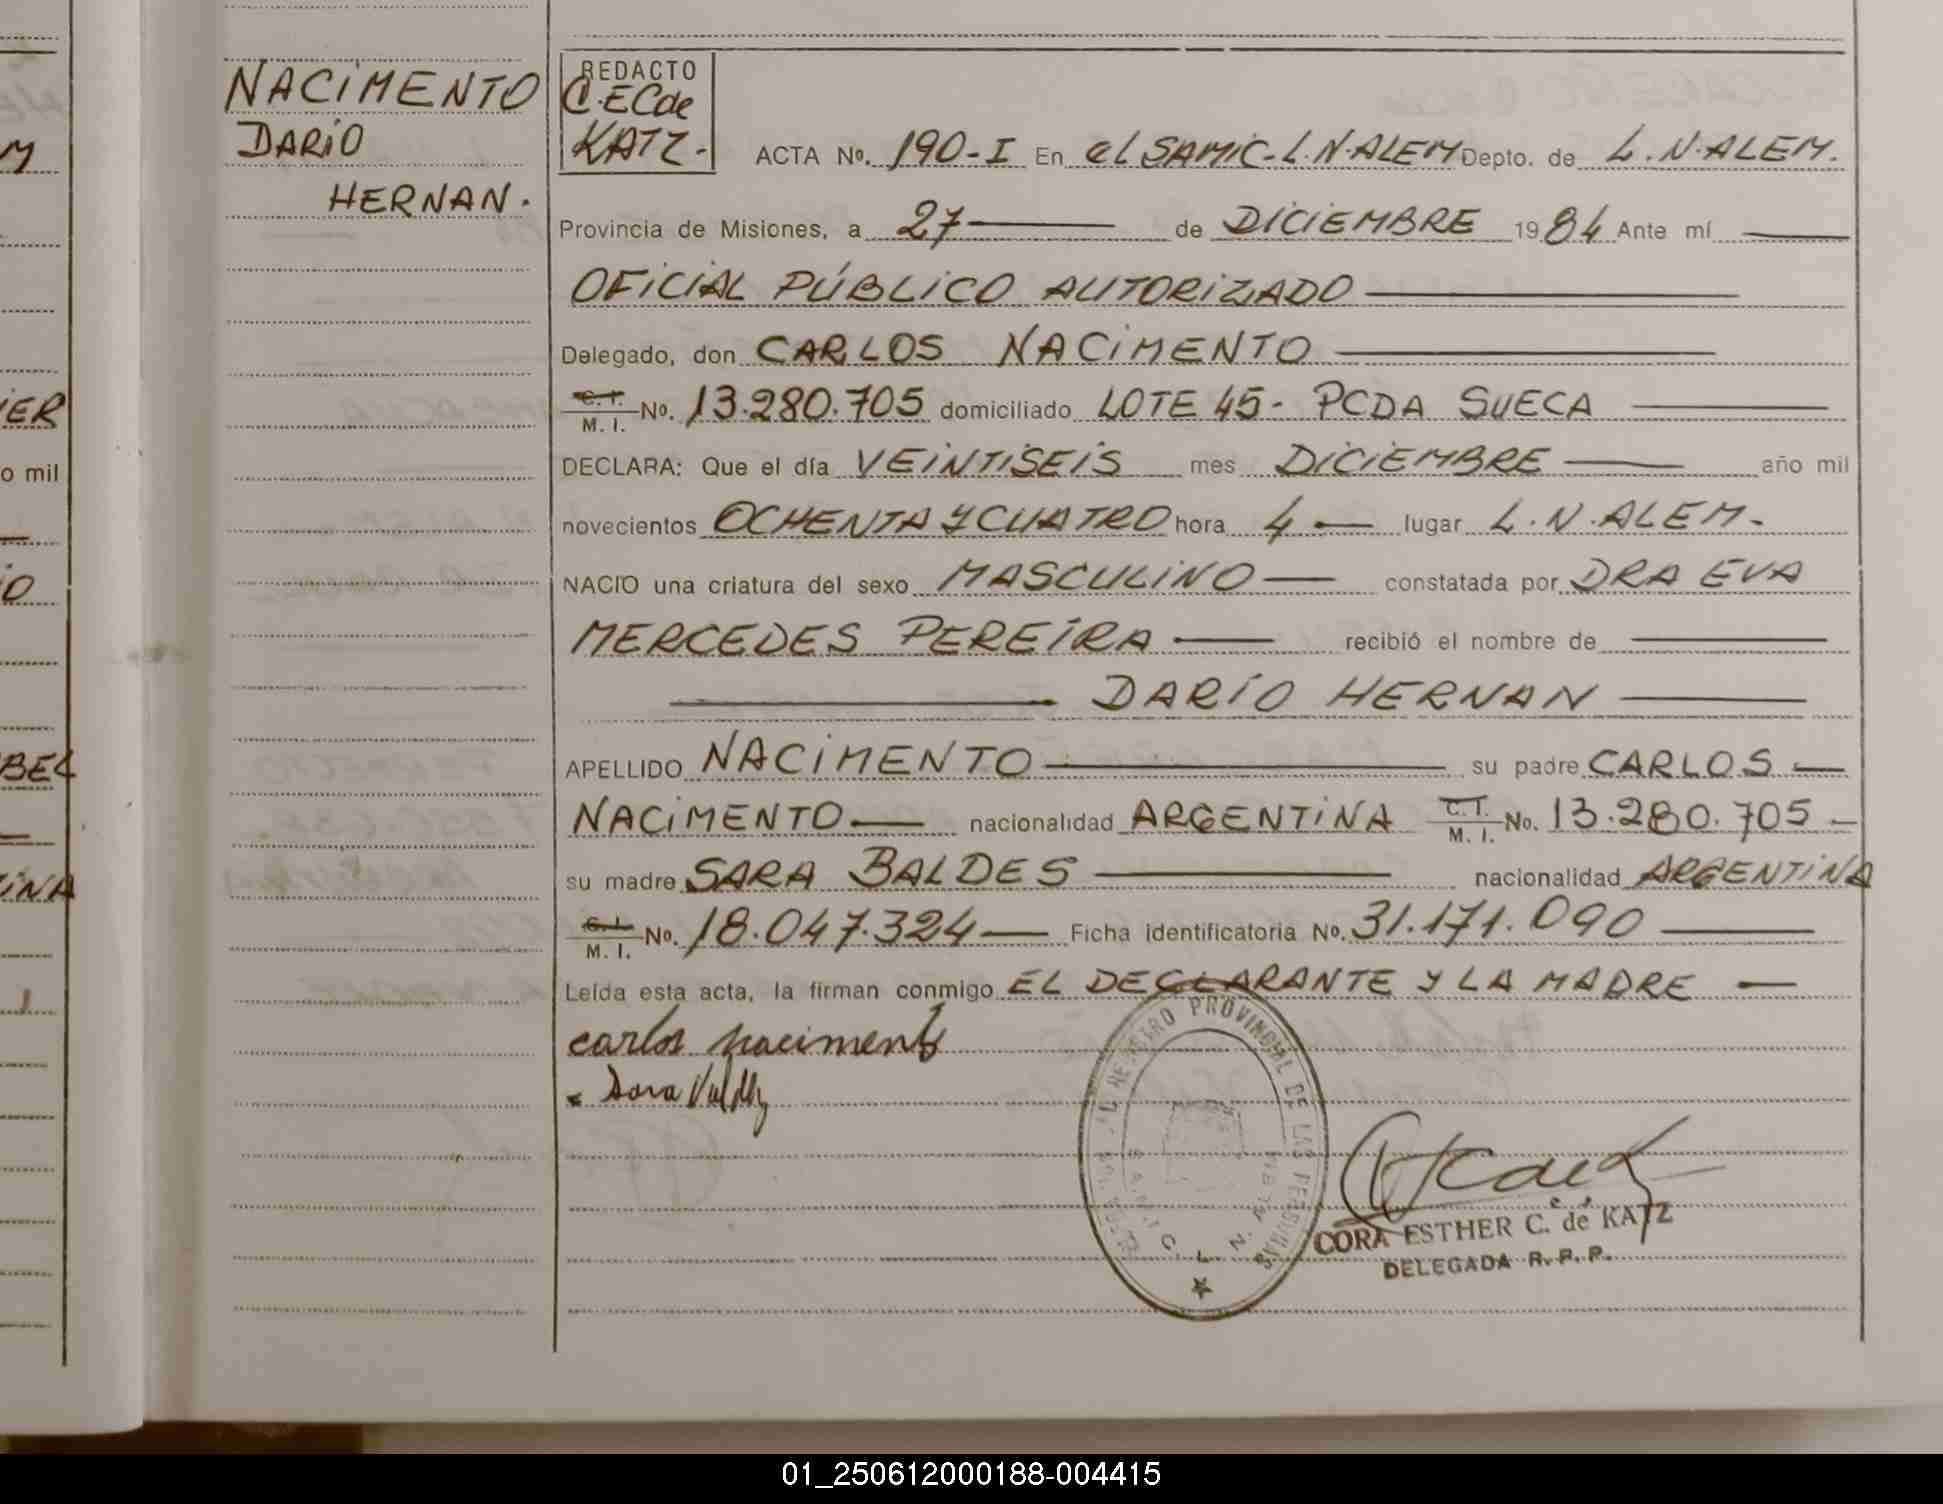 NACIMENTO
DARIO
HERNAN.
REDACTO
C.ECde
KATZ.-
ACTA No. 190-I En el SAMIC-L.N.ALEM Depto. de L.N.ALEM.
Provincia de Misiones, a 27 de DICIEMBRE 1984 Ante mí
OFICIAL PÚBLICO AUTORIZADO
Delegado, don CARLOS NACIMENTO
C. I.
M. I. No. 13.280.705 domiciliado LOTE 45- PCDA SUECA
DECLARA: Que el día VEINTISEIS mes DICIEMBRE año mil
novecientos OCHENTA Y CUATRO hora 4 lugar L.N.ALEM-
NACIO una criatura del sexo MASCULINO constatada por DRA EVA
MERCEDES PEREIRA recibió el nombre de
DARÍO HERNAN
APELLIDO NACIMENTO su padre CARLOS
NACIMENTO nacionalidad ARGENTINA C. I.
M. I. No. 13.280.705
su madre SARA BALDES nacionalidad ARGENTINA
C. I.
M. I. No. 18.047.324 Ficha identificatoria No. 31.171.090
Leída esta acta, la firman conmigo EL DECLARANTE Y LA MADRE
carlos nacimento
REGISTRO PROVINCIAL DE LAS PERSONAS
CORA ESTHER C. de KATZ
DELEGADA R. P. P.
ER
o mil
O
BEL
INA
01_250612000188-004415